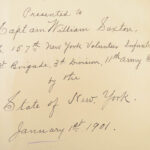 Presented to
Captain William Saxton,
157th New York Volunteer Infantry
1st Brigade, 3d Division, 11th Army
by the
State of New York.
January 1st 1901.